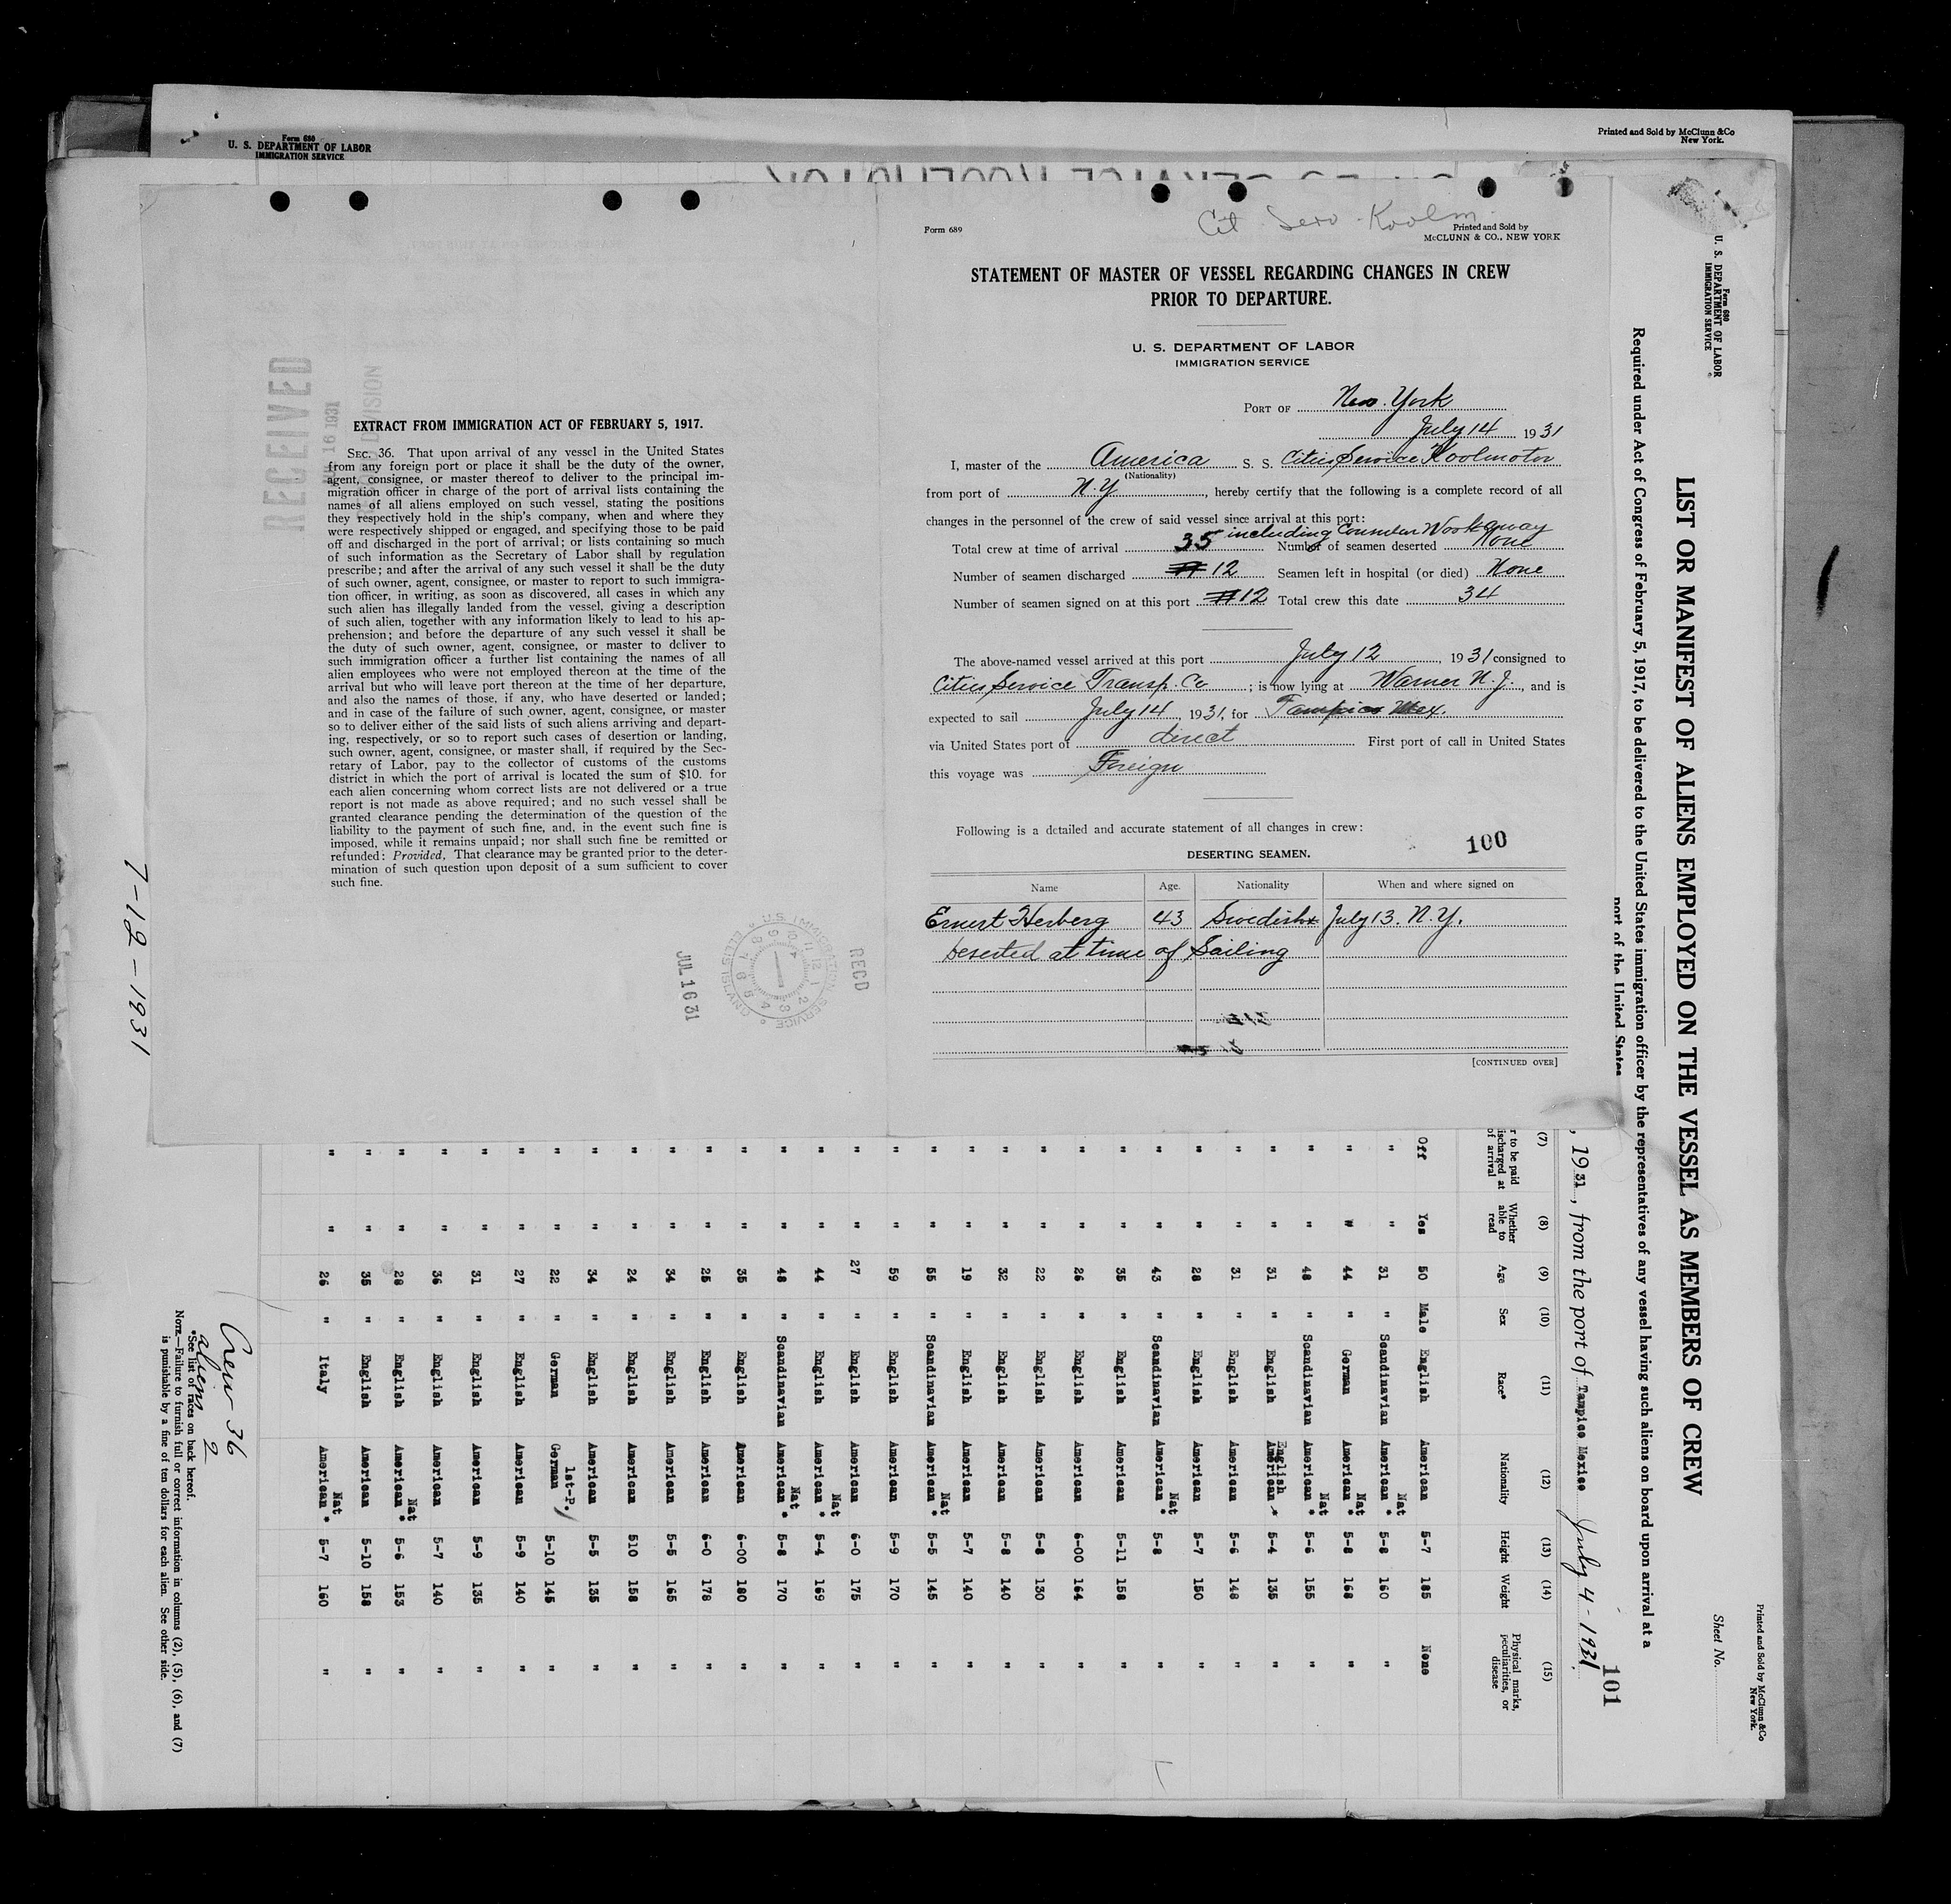 Form 680
U. S. DEPARTMENT OF LABOR
IMMIGRATION SERVICE
Printed and Sold by McClunn &Co
New York.
EXTRACT FROM IMMIGRATION ACT OF FEBRUARY 5, 1917.
SEC. 36. That upon arrival of any vessel in the United States
from any foreign port or place it shall be the duty of the owner,
agent, consignee, or master thereof to deliver to the principal im-
migration officer in charge of the port of arrival lists containing the
names of all aliens employed on such vessel, stating the positions
they respectively hold in the ship's company, when and where they
were respectively shipped or engaged, and specifying those to be paid
off and discharged in the port of arrival; or lists containing so much
of such information as the Secretary of Labor shall by regulation
prescribe; and after the arrival of any such vessel it shall be the duty
of such owner, agent, consignee, or master to report to such immigra-
tion officer, in writing, as soon as discovered, all cases in which any
such alien has illegally landed from the vessel, giving a description
of such alien, together with any information likely to lead to his ap-
prehension; and before the departure of any such vessel it shall be
the duty of such owner, agent, consignee, or master to deliver to
such immigration officer a further list containing the names of all
alien employees who were not employed thereon at the time of the
arrival but who will leave port thereon at the time of her departure,
and also the names of those, if any, who have deserted or landed;
and in case of the failure of such owner, agent, consignee, or master
so to deliver either of the said lists of such aliens arriving and depart-
ing, respectively, or so to report such cases of desertion or landing,
such owner, agent, consignee, or master shall, if required by the Sec-
retary of Labor, pay to the collector of customs of the customs
district in which the port of arrival is located the sum of $10. for
each alien concerning whom correct lists are not delivered or a true
report is not made as above required; and no such vessel shall be
granted clearance pending the determination of the question of the
liability to the payment of such fine, and, in the event such fine is
imposed, while it remains unpaid; nor shall such fine be remitted or
refunded: Provided, That clearance may be granted prior to the deter-
mination of such question upon deposit of a sum sufficient to cover
such fine.
RECEIVED
16 1931
DIVISION
U.S. IMMIGRATION SERVICE
ELLIS ISLAND
JUL 16 31
RECD
7-12-1931
Cit Serv Koolm
Form 689
Printed and Sold by
McCLUNN & CO., NEW YORK
STATEMENT OF MASTER OF VESSEL REGARDING CHANGES IN CREW
PRIOR TO DEPARTURE.
U. S. DEPARTMENT OF LABOR
IMMIGRATION SERVICE
PORT OF New York
July 14 1931
I, master of the America S. S. Cities Service Koolmotor
(Nationality)
from port of N.Y, hereby certify that the following is a complete record of all
changes in the personnel of the crew of said vessel since arrival at this port:
including Workaway
Total crew at time of arrival 35 Number of seamen deserted None
Number of seamen discharged 12 Seamen left in hospital (or died) None
Number of seamen signed on at this port 12 Total crew this date 34
The above-named vessel arrived at this port July 12, 1931 consigned to
Cities Service Transp. Co; is now lying at Warner N.J., and is
expected to sail July 14, 1931, for Tampico Mex.
via United States port of direct First port of call in United States
this voyage was Foreign
Following is a detailed and accurate statement of all changes in crew:
100
DESERTING SEAMEN.
Name Age. Nationality When and where signed on
Ernest Herberg 43 Swedish July 13. N.Y.
Deserted at time of Sailing
[CONTINUED OVER]
Form 680
U. S. DEPARTMENT OF LABOR
IMMIGRATION SERVICE
Printed and Sold by McClunn &Co
New York.
Sheet No.
LIST OR MANIFEST OF ALIENS EMPLOYED ON THE VESSEL AS MEMBERS OF CREW
Required under Act of Congress of February 5, 1917, to be delivered to the United States immigration officer by the representatives of any vessel having such aliens on board upon arrival at a
port of the United States
101
, 1931, from the port of Tampico Mexico July 4-1931
(7) (8) (9) (10) (11) (12) (13) (14) (15)
r to be paid
ischarged at
of arrival
Whether
able to
read
Age
Sex
Race*
Nationality
Height
Weight
Physical marks,
peculiarities, or
disease
Off Yes 50 Male English American 5-7 185 None
" " 31 " Scandinavian American * Nat 5-8 160 "
" " 44 " German American * Nat 5-8 168 "
" " 48 " Scandinavian American * Nat 5-6 155 "
" " 31 " English English American * 5-4 135 "
" " 31 " English American 5-6 148 "
" " 28 " English American 5-7 150 "
" " 43 " Scandinavian American * Nat 5-8 "
" " 35 " English American 5-11 158 "
" " 26 " English American 6-00 164 "
" " 22 " English American 5-8 130 "
" " 32 " English American 5-8 140 "
" " 19 " English American 5-7 140 "
" " 55 " Scandinavian American * Nat 5-5 145 "
" " 59 " English American 5-9 170 "
" " 27 " English American 6-0 175 "
" " 44 " English American * Nat 5-4 169 "
" " 48 " Scandinavian American * Nat 5-8 170 "
" " 35 " English American 6-00 180 "
" " 25 " English American 6-0 178 "
" " 34 " English American 5-5 165 "
" " 24 " English American 510 158 "
" " 34 " English American 5-5 135 "
" " 22 " German German 1st-P. 5-10 145 "
" " 27 " English American 5-9 140 "
" " 31 " English American 5-9 135 "
" " 36 " English American 5-7 140 "
" " 28 " English American * Nat 5-6 153 "
" " 35 " English American 5-10 158 "
" " 26 " Italy American * Nat 5-7 160 "
Crew 36
alien 2
*See list of races on back hereof.
NOTE.—Failure to furnish full or correct information in columns (2), (5), (6), and (7)
is punishable by a fine of ten dollars for each alien. See other side.